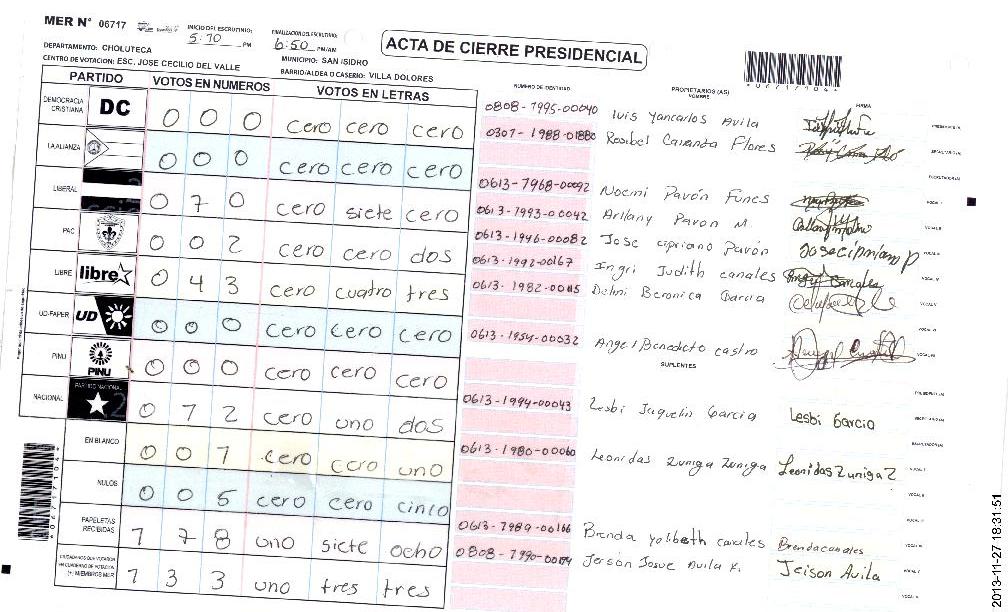 MER N° 06717
INICIO DEL ESCRUTINIO: 5:10 PM
FINALIZACION DEL ESCRUTINIO: 6:50 PM/AM
ACTA DE CIERRE PRESIDENCIAL
DEPARTAMENTO: CHOLUTECA
MUNICIPIO: SAN ISIDRO
CENTRO DE VOTACION: ESC. JOSE CECILIO DEL VALLE
BARRIO/ALDEA O CASERIO: VILLA DOLORES
PARTIDO VOTOS EN NUMEROS VOTOS EN LETRAS
DEMOCRACIA CRISTIANA DC 0 0 0 cero cero cero
LA ALIANZA 0 0 0 cero cero cero
LIBERAL 0 7 0 cero siete cero
PAC 0 0 2 cero cero dos
LIBRE libre 0 4 3 cero cuatro tres
UD-FAPER UD 0 0 0 cero cero cero
PINU PINU 0 0 0 cero cero cero
NACIONAL PARTIDO NACIONAL 0 1 2 cero uno dos
EN BLANCO 0 0 1 cero cero uno
NULOS 0 0 5 cero cero cinco
PAPELETAS RECIBIDAS 1 7 8 uno siete ocho
CIUDADANOS QUE VOTARON EN CUADERNO DE VOTACION (+) MIEMBROS MER 1 3 3 uno tres tres
NUMERO DE IDENTIDAD PROPIETARIOS (AS) NOMBRE FIRMA
0808-1995-00040 luis Yancarlos Avila
0307-1988-01880 Rosibel Cananda Flores
0613-1968-00092 Noemi Pavón Funes
0613-1993-00042 Arllany Pavon M
0613-1946-00082 Jose cipriano Pavón Josecipriano P
0613-1992-00167 Ingri Judith canales
0613-1982-00115 Delmi Beronica Garcia
0613-1954-00032 Angel Benedicto castro
SUPLENTES
0613-1994-00043 Lesbi Jaquelin Garcia Lesbi Garcia
0613-1980-00060 Leonidas Zuniga Zuniga Leonidas Zuniga Z
0613-1989-00166 Brenda yolibeth canales Brenda canales
0808-1990-00174 Jeison Josue Avila K. Jeison Avila
2013-11-27 18:31:51